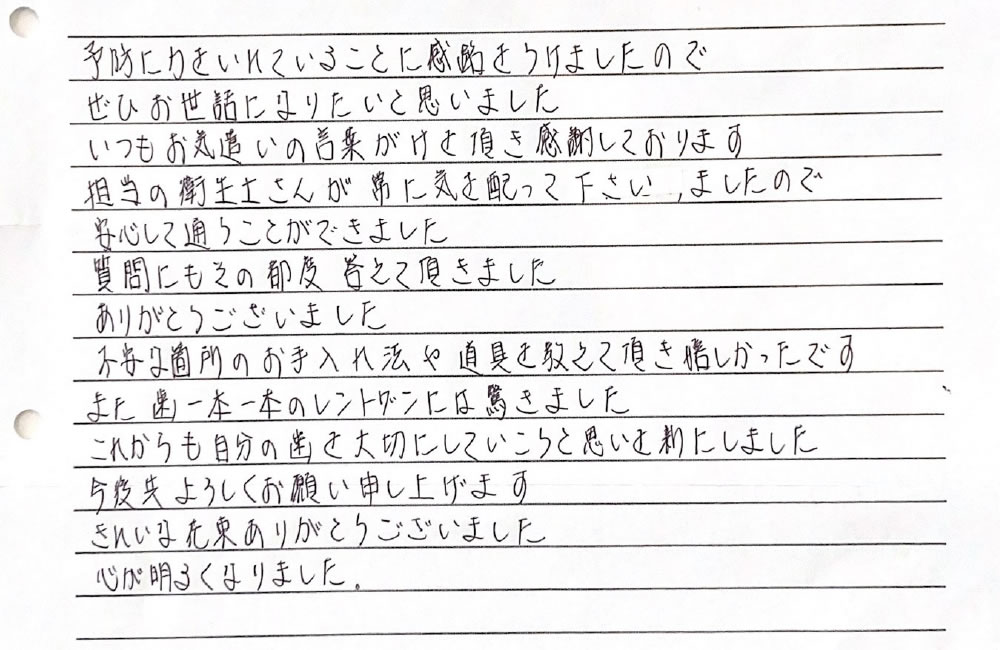 予防に力をいれていることに感銘をうけましたので
ぜひお世話になりたいと思いました
いつもお気遣いの言葉がけを頂き感謝しております
担当の衛生士さんが常に気を配って下さいましたので
安心して通うことができました
質問にもその都度 答えて頂きました
ありがとうございました
不安な箇所のお手入れ法や道具を教えて頂き嬉しかったです
また歯一本一本のレントゲンには驚きました
これからも自分の歯を大切にしていこうと思いを新にしました
今後共よろしくお願い申し上げます
きれいな花束ありがとうございました
心が明るくなりました。